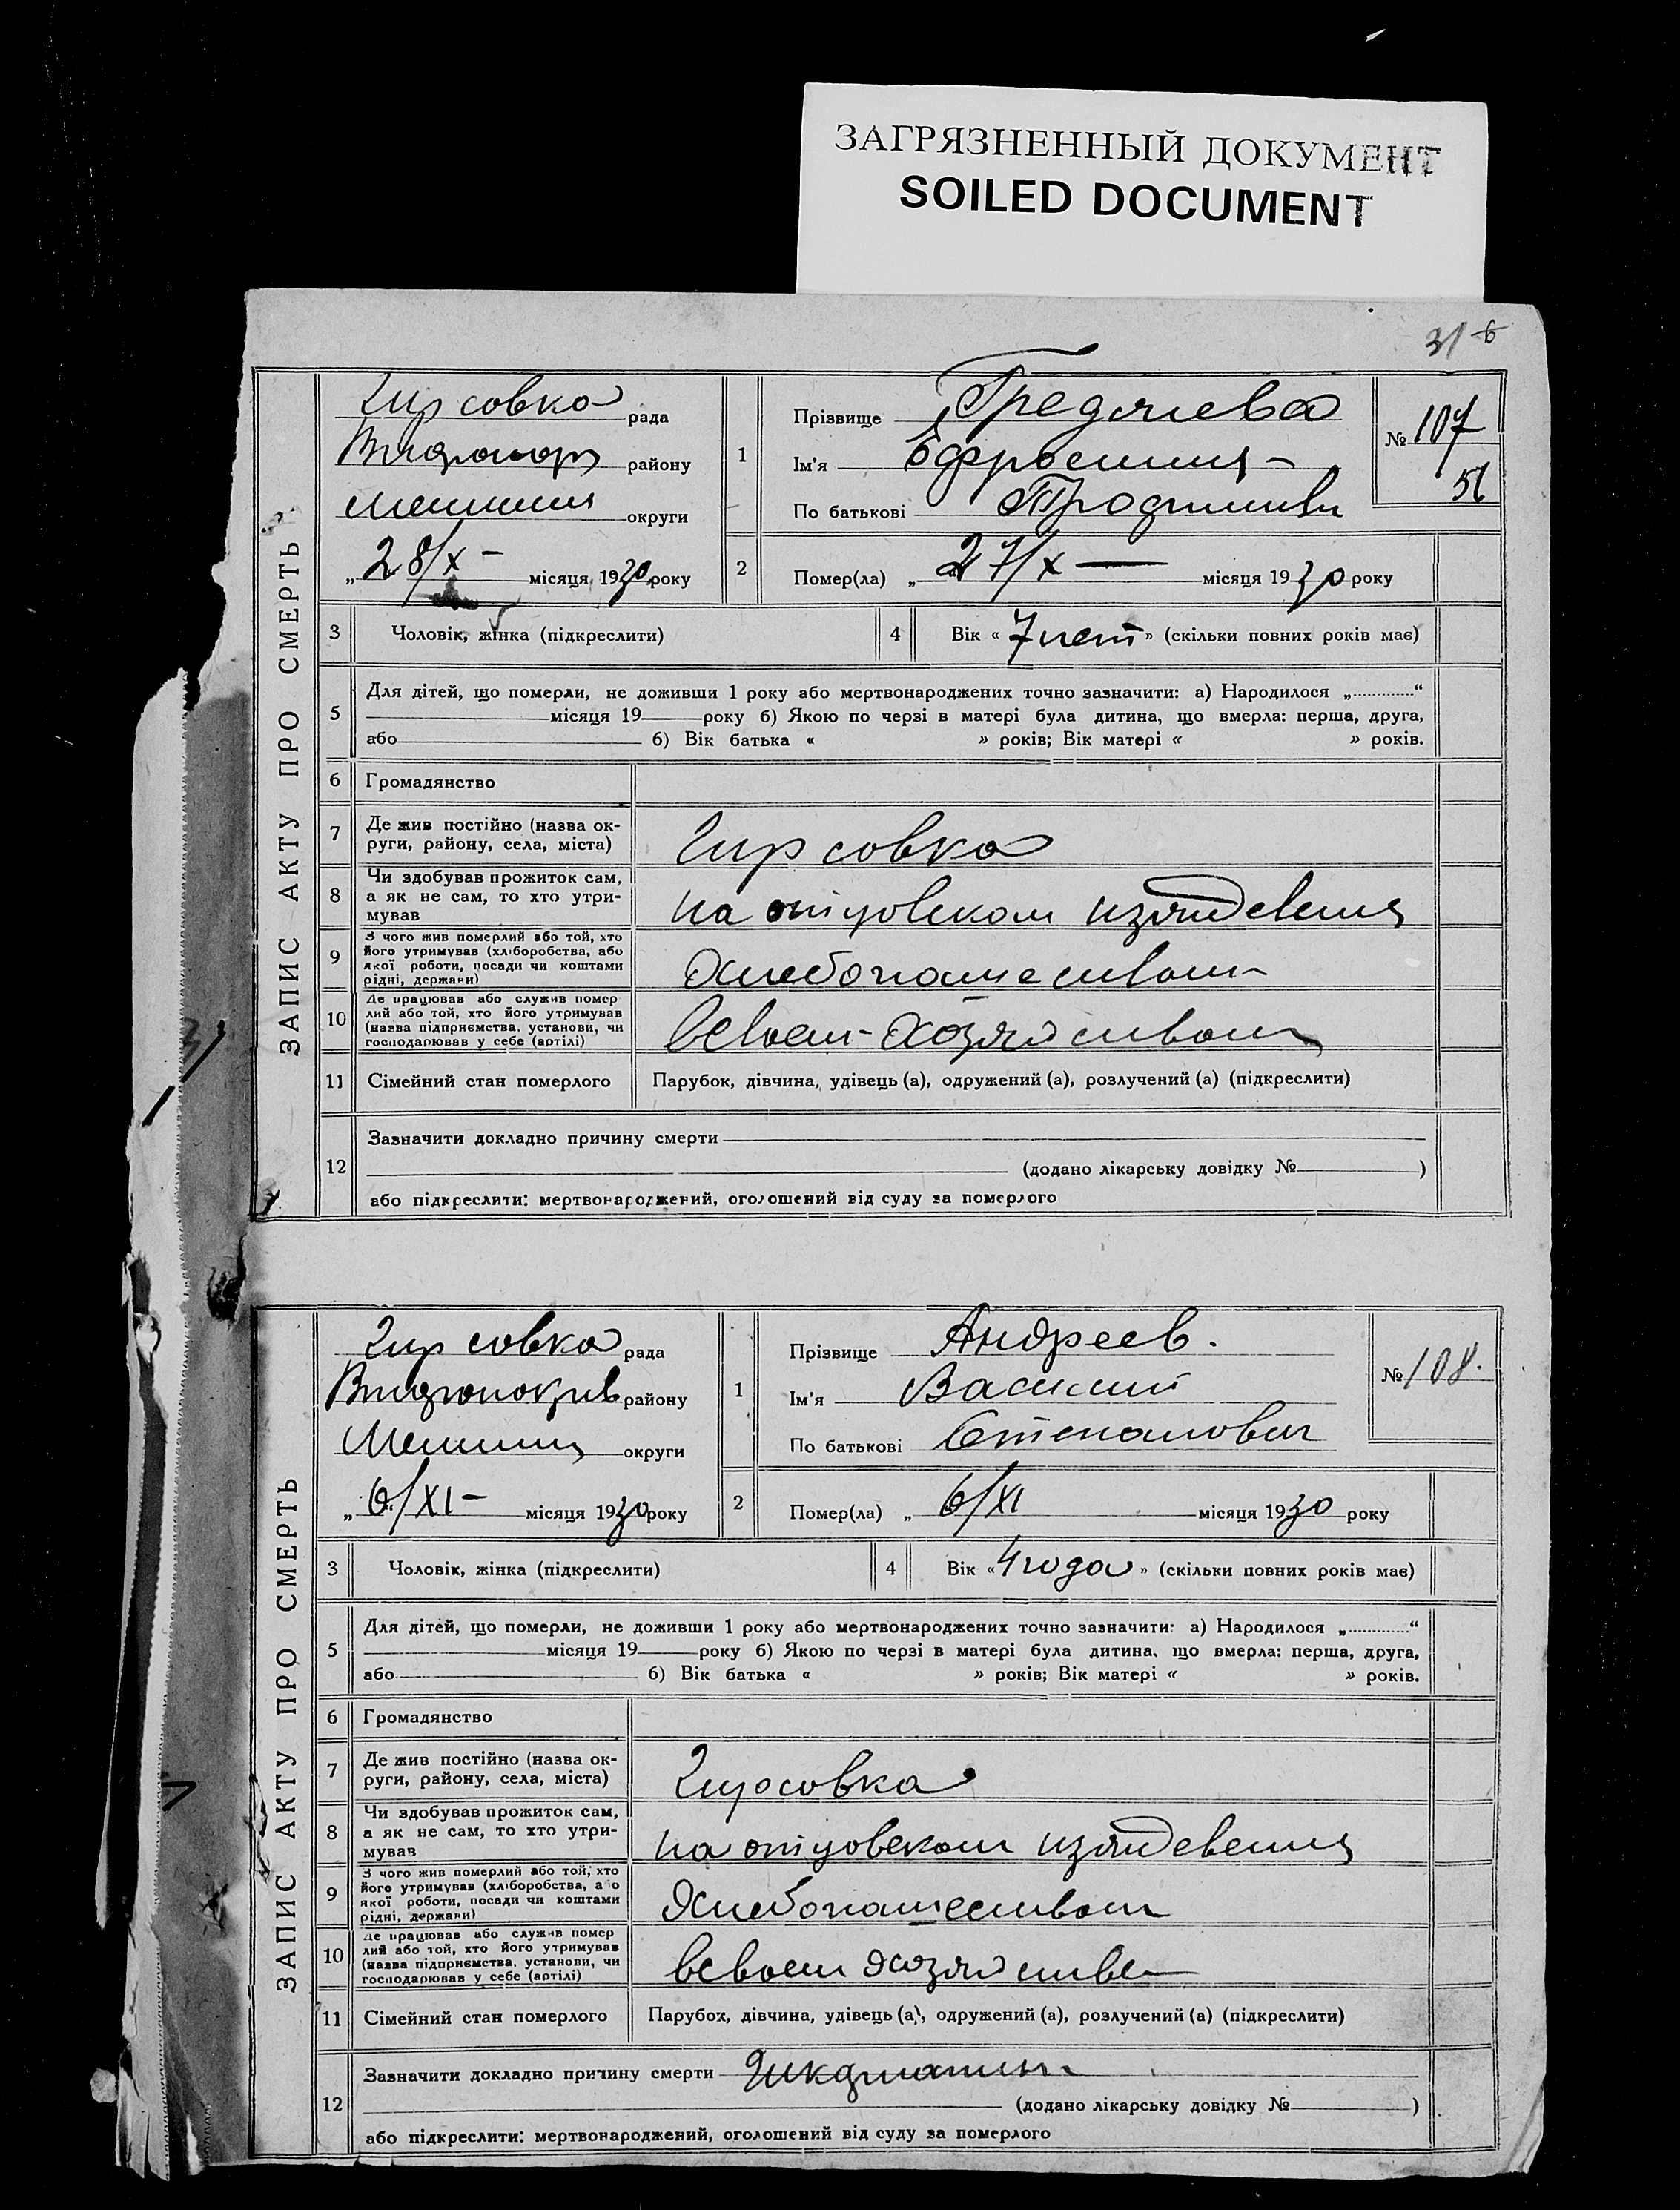 ЗАГРЯЗНЕННЫЙ ДОКУМЕНТ
SOILED DOCUMENT
31
ЗАПИС АКТУ ПРО СМЕРТЬ
Гирсовка рада
району
округи
„28/X - місяця 1930 року
1
Прізвище
Ім'я Ефросиния -
По батькові
№ 107
56
2
Помер(ла) „27/X — місяця 1930 року
3 Чоловік, жінка (підкреслити)
4 Вік « 7 лет » (скільки повних років має)
5
Для дітей, що померли, не доживши 1 року або мертвонароджених точно зазначити: а) Народилося „............“
місяця 19 року б) Якою по черзі в матері була дитина, що вмерла: перша, друга,
або б) Вік батька « » років; Вік матері « » років.
6 Громадянство
7 Де жив постійно (назва ок-
руги, району, села, міста)
Гирсовка
8 Чи здобував прожиток сам,
а як не сам, то хто утри-
мував
на отцовском
9 З чого жив померлий або той, хто
його утримував (хліборобства, або
якої роботи, посади чи коштами
рідні, держави)
Хлебопашеством
10 Де працював або служив помер
лий або той, хто його утримував
(назва підприємства, установи, чи
господарював у себе (артілі)
всвоем Хозяйством
11 Сімейний стан померлого Парубок, дівчина, удівець (а), одружений (а), розлучений (а) (підкреслити)
12
Зазначити докладно причину смерти
(додано лікарську довідку № )
або підкреслити: мертвонароджений, оголошений від суду за померлого
ЗАПИС АКТУ ПРО СМЕРТЬ
Гирсовка рада
району
округи
„6/XI - місяця 1930 року
1
Прізвище Андреев.
Ім'я Василий
По батькові Степанович
№ 108.
2
Помер(ла) „ 6/XI місяця 1930 року
3 Чоловік, жінка (підкреслити)
4 Вік « 4 года » (скільки повних років має)
5
Для дітей, що померли, не доживши 1 року або мертвонароджених точно зазначити: а) Народилося „............“
місяця 19 року б) Якою по черзі в матері була дитина, що вмерла: перша, друга,
або б) Вік батька « » років; Вік матері « » років.
6 Громадянство
7 Де жив постійно (назва ок-
руги, району, села, міста)
Гирсовка
8 Чи здобував прожиток сам,
а як не сам, то хто утри-
мував
на отцовском
9 З чого жив померлий або той, хто
його утримував (хліборобства, або
якої роботи, посади чи коштами
рідні, держави)
Хлебопашеством
10 Де працював або служив помер
лий або той, хто його утримував
(назва підприємства, установи, чи
господарював у себе (артілі)
всвоем хозяйстве
11 Сімейний стан померлого Парубок, дівчина, удівець (а), одружений (а), розлучений (а) (підкреслити)
12
Зазначити докладно причину смерти
(додано лікарську довідку № )
або підкреслити: мертвонароджений, оголошений від суду за померлого